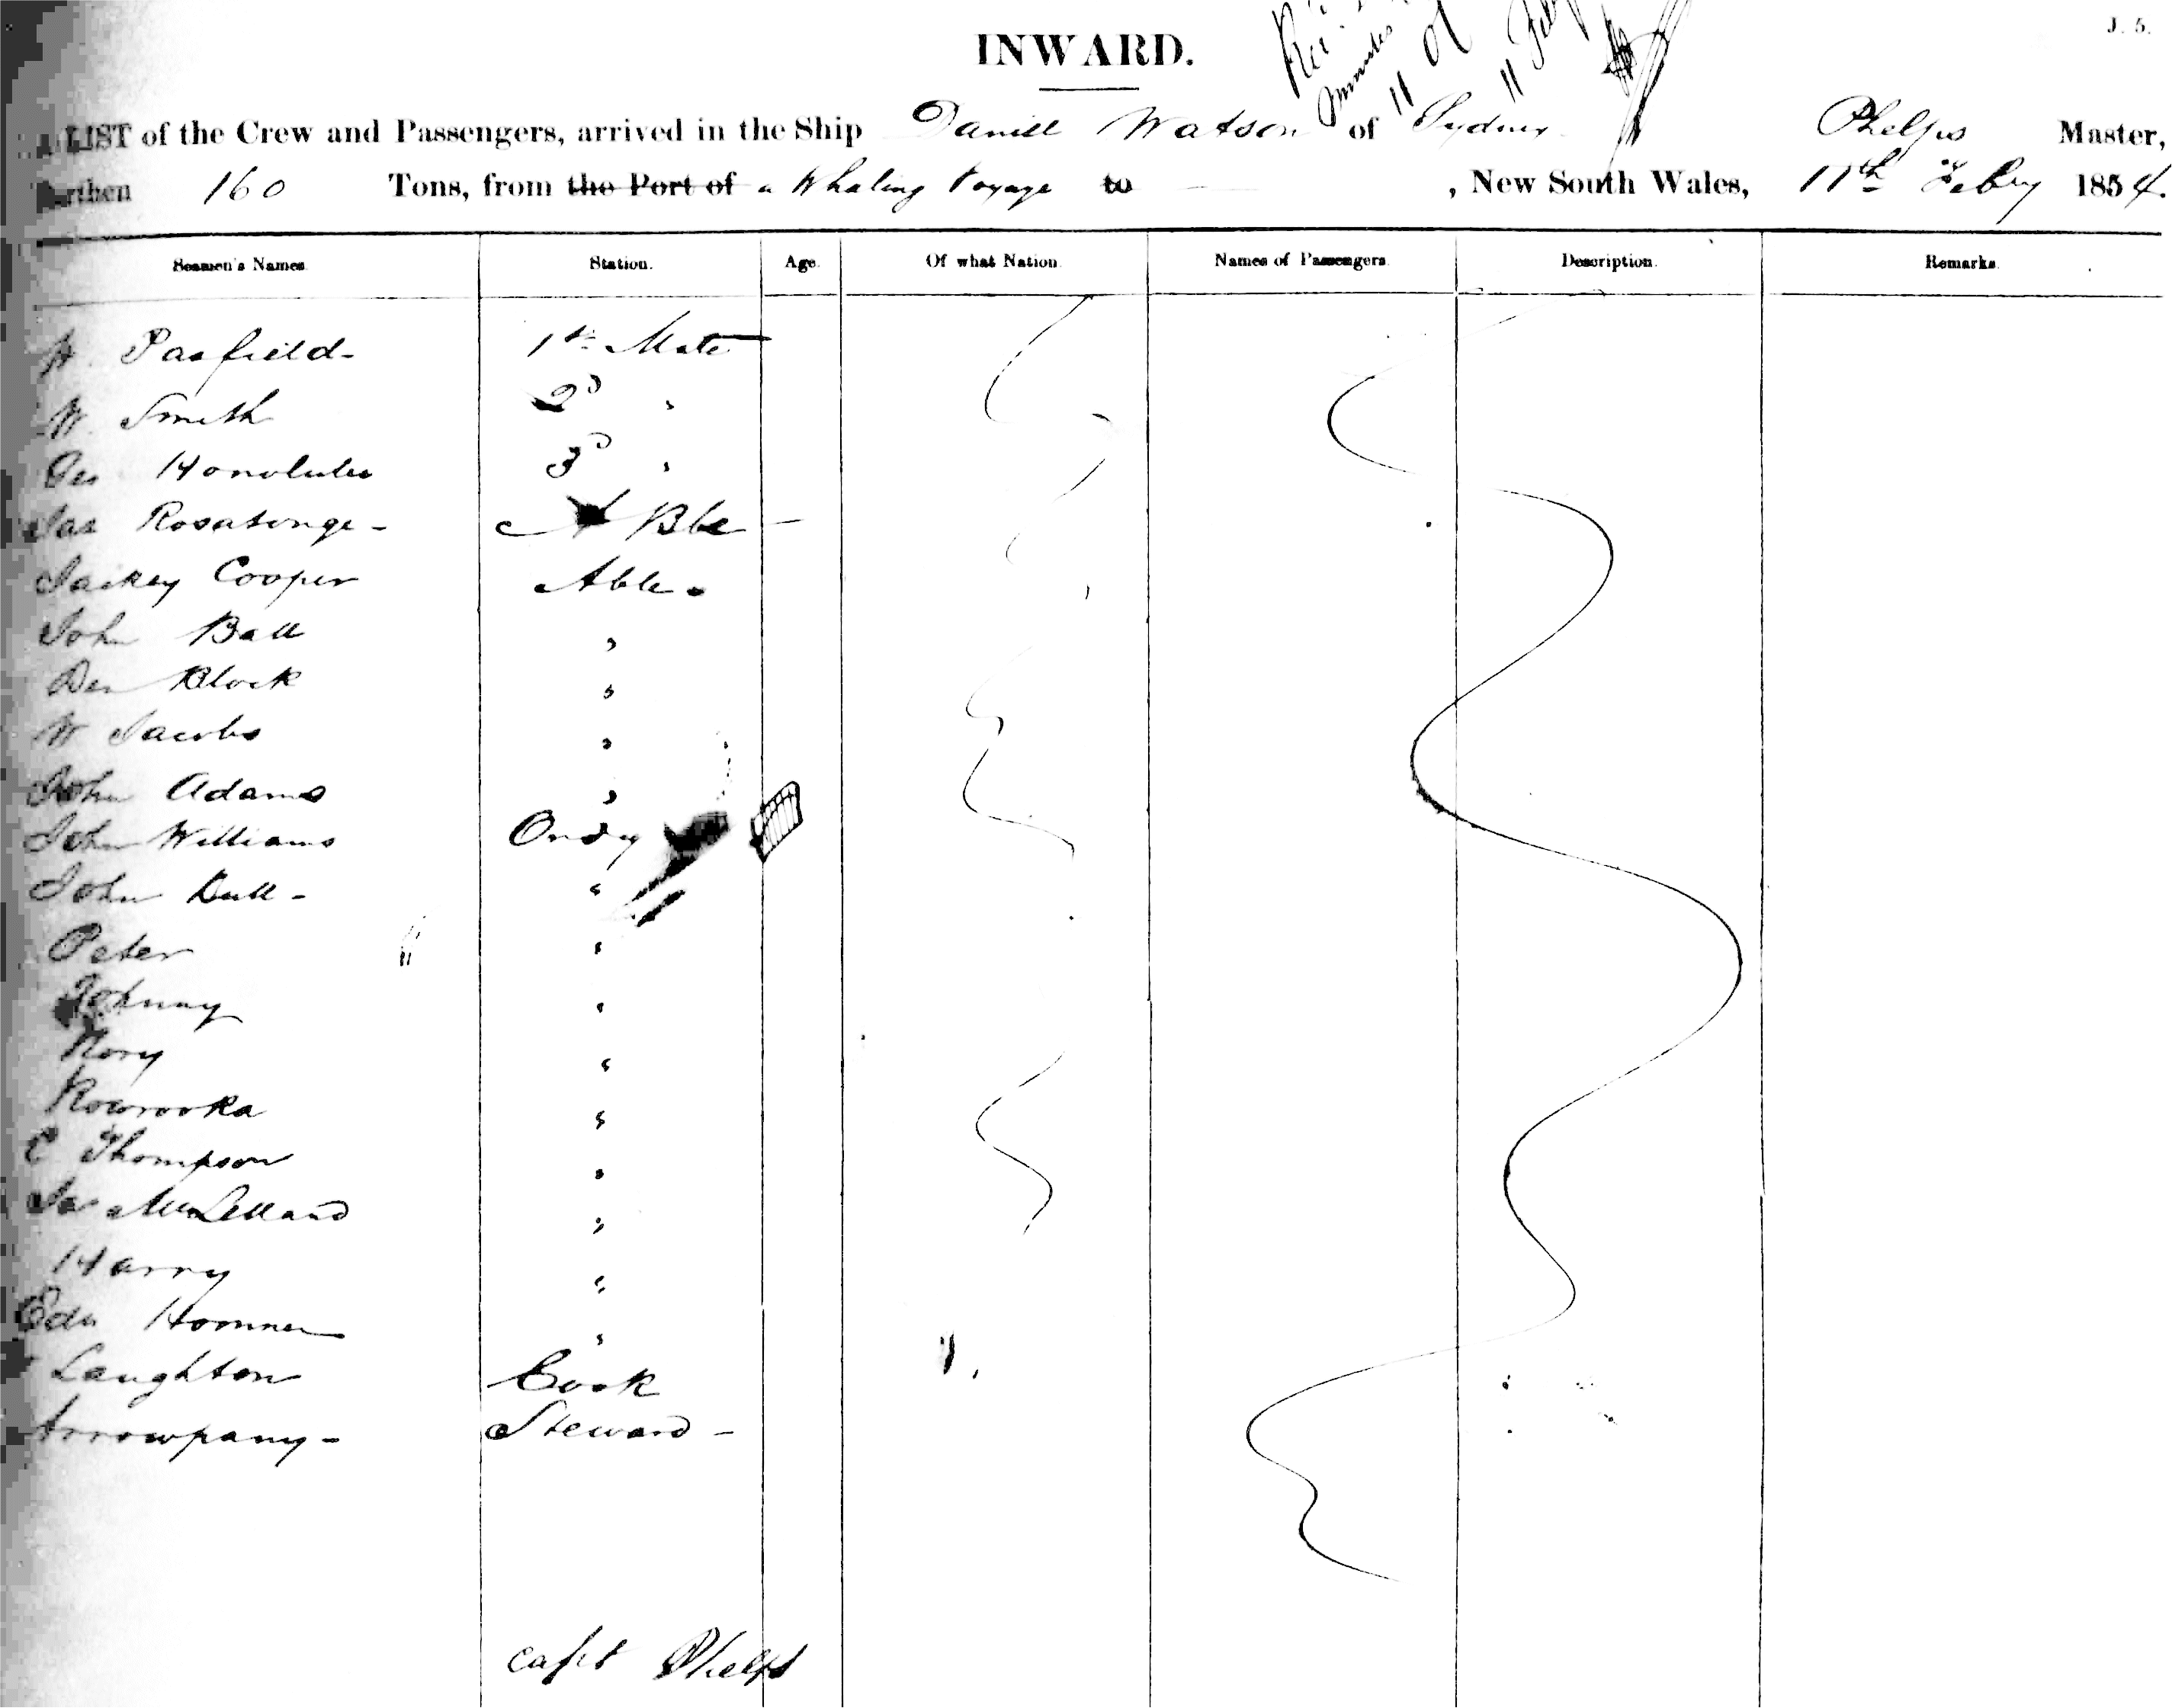 J. 5.
INWARD.
11
11
LIST of the Crew and Passengers, arrived in the Ship Daniel Watson of Sydney Phelps Master,
Burthen 160 Tons, from the Port of a Whaling Voyage to , New South Wales, 11th Feby 1854.
Seamen's Names. Station. Age. Of what Nation. Names of Passengers. Description. Remarks.
Pasfield- 1st Mate
W. Smith 2d "
Honolulu 3d "
Jas Rosatonga - A Ble -
Jackey Cooper Able.
John Ball "
Ben Block "
W Jacobs "
John Adams "
John Williams Ordy
John Bull - "
Peter "
Johnny "
Rory "
Kowrooka "
C Thompson "
McLelland "
Harry "
Edw "
Laughton Cook
Arrowpany - Steward -
Capt Phelps